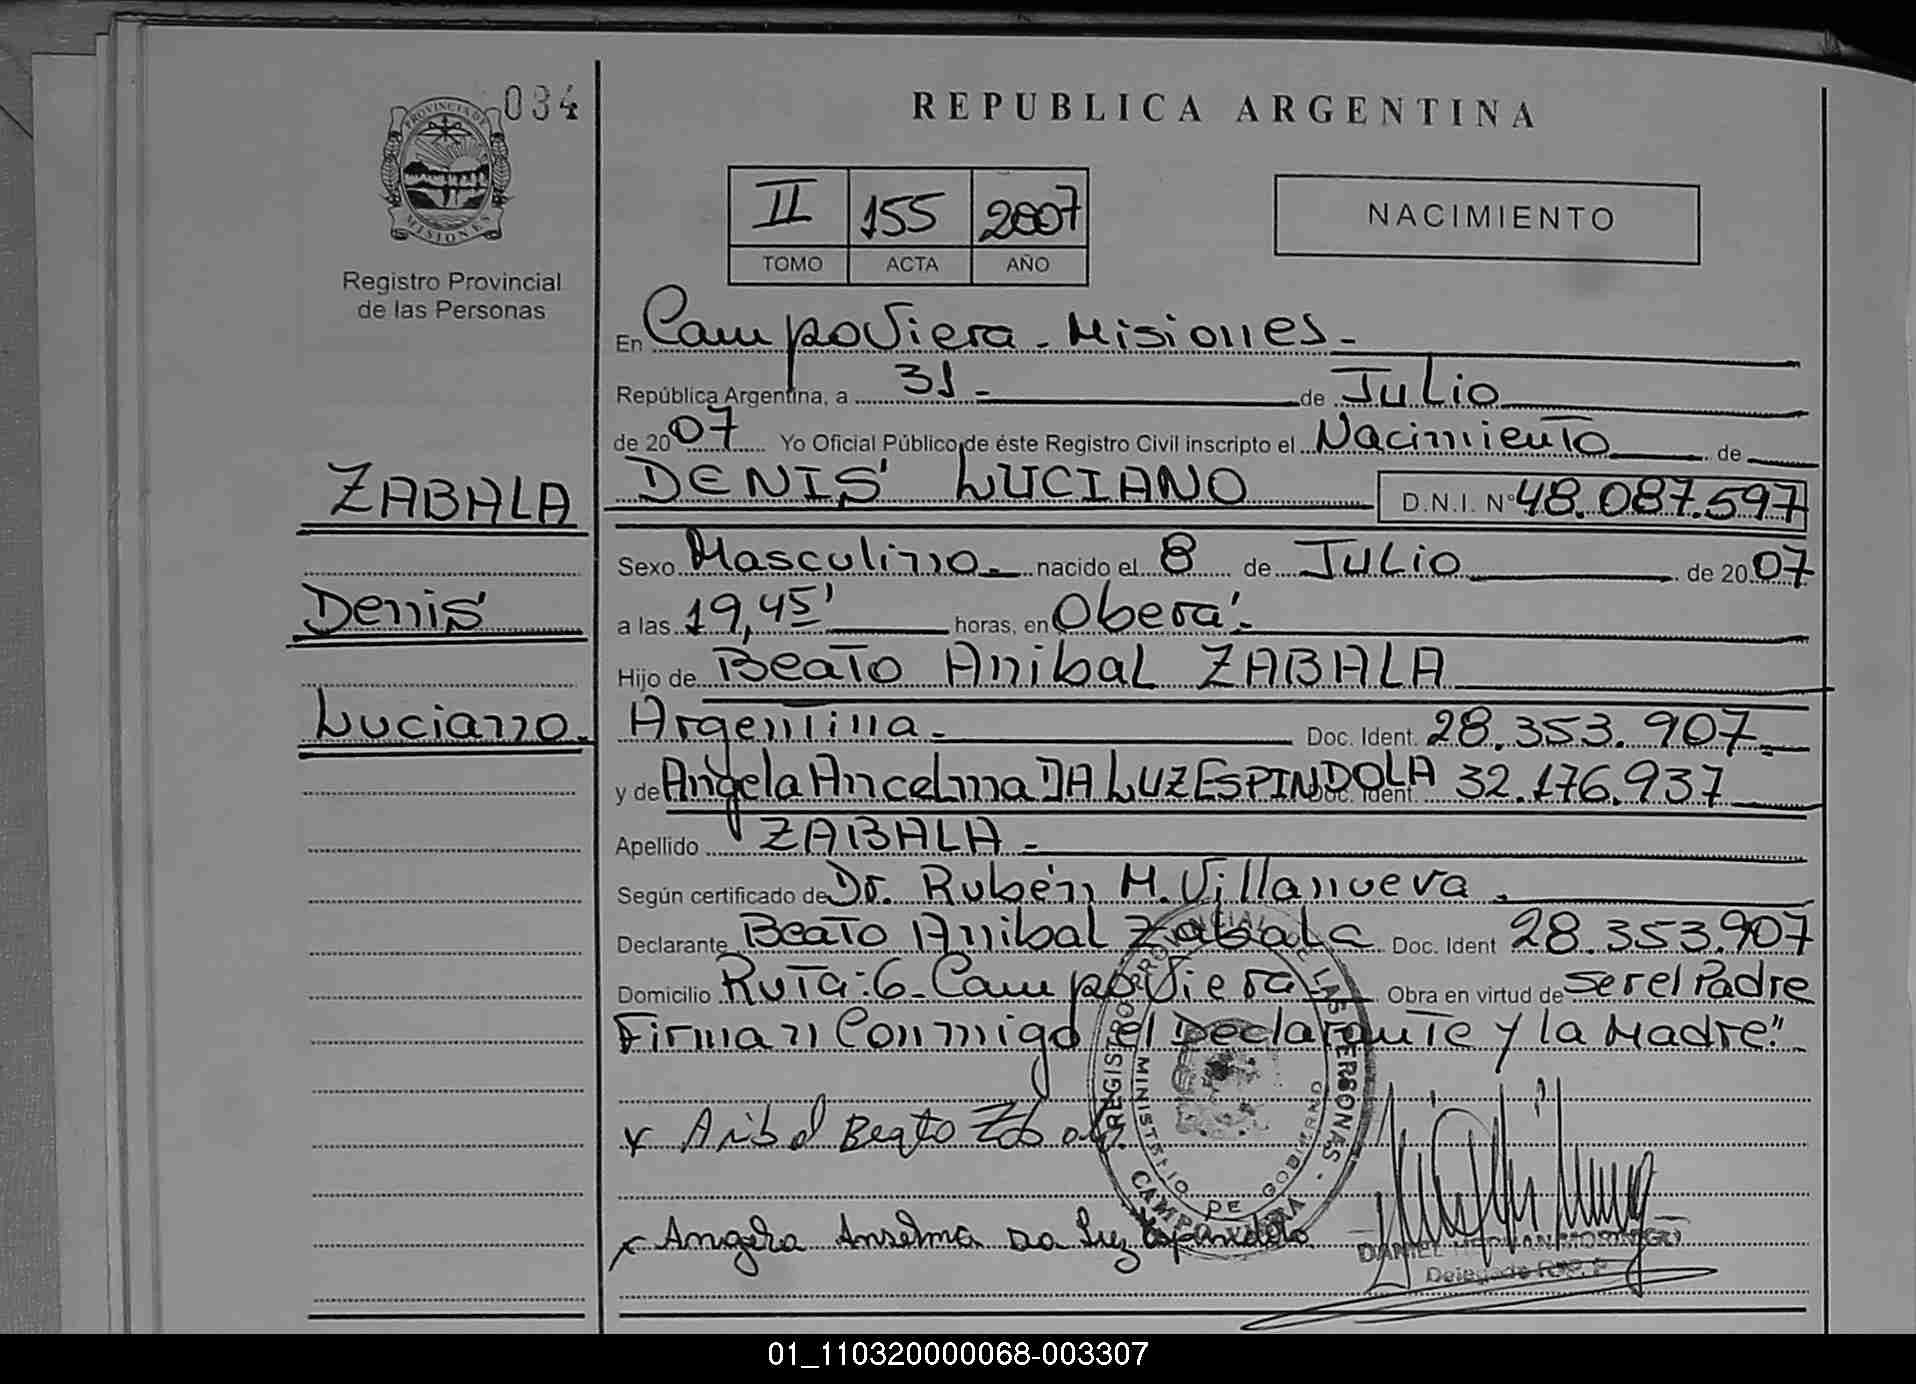 034
REPUBLICA ARGENTINA
PROVINCIA DE
MISIONES
Registro Provincial
de las Personas
II 155 2007
TOMO ACTA AÑO
NACIMIENTO
En Campo Viera - Misiones -
República Argentina, a 31 - de Julio
de 2007 Yo Oficial Público de éste Registro Civil inscripto el Nacimiento de
ZABALA
DENIS LUCIANO D.N.I. Nº 48.087.597
Sexo Masculino nacido el 8 de Julio de 2007
Denis
a las 19,45' horas, en Oberá -
Hijo de Beato Anibal ZABALA
Luciano.
Argentina - Doc. Ident. 28.353.907 -
y de Angela Ancelma DA LUZ ESPINDOLA Doc. Ident. 32.176.937
Apellido ZABALA -
Según certificado de Dr. Rubén M. Villanueva.
Declarante Beato Anibal Zabala Doc. Ident 28.353.907
Domicilio Ruta: 6 - Campo Viera Obra en virtud de ser el Padre
Firman Conmigo el Declarante y la Madre"
x Anibal Beato Zabala
x Angela Anselma Da Luz Espindola
REGISTRO PROVINCIAL DE LAS PERSONAS -
MINISTERIO DE GOBIERNO
CAMPO VIERA
DANIEL HERNAN
Delegado R.P.P
01_110320000068-003307